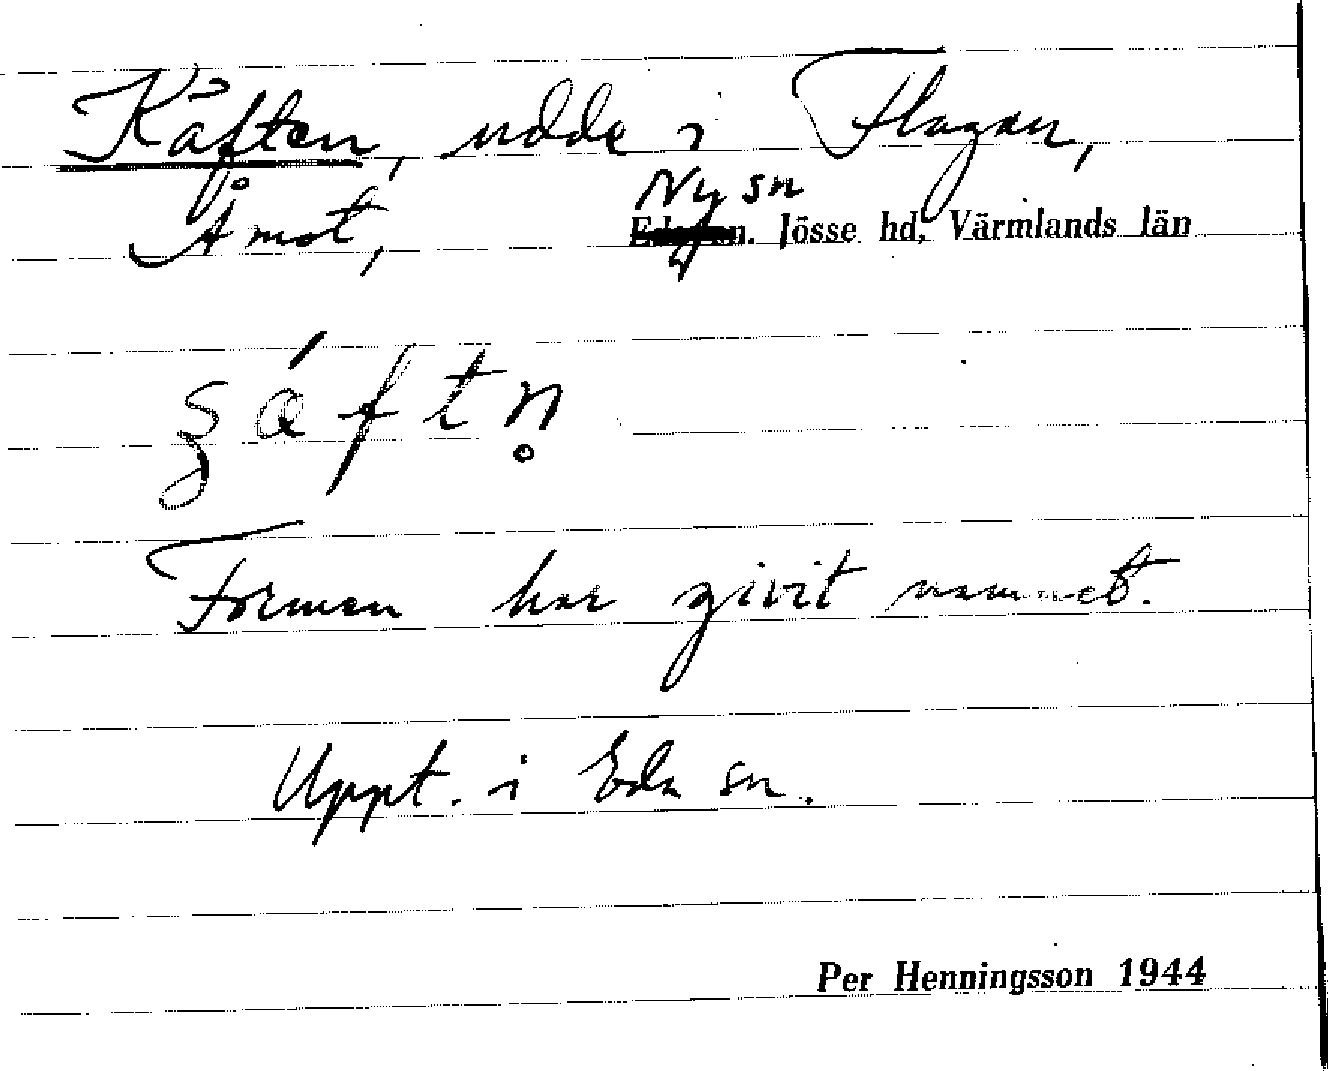 Käften, udde i Flagan,
Åmot, Ny sn
Eda sn. Jösse hd, Värmlands län
ʒáftn̥
Formen har givit namnet.
Uppt. i Eda sn.
Per Henningsson 1944